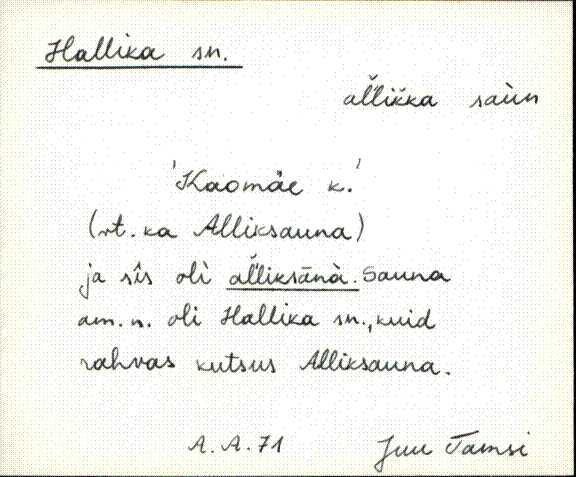 Hallika sn.
al̆likka saùn
'Kaomäe k.'
(vt. ka Alliksauna)
ja sîs oli al̆liksānà. Sauna
am. n. oli Hallika sn., kuid
rahvas kutsus Alliksauna.
A. A. 71 Juu Tamsi